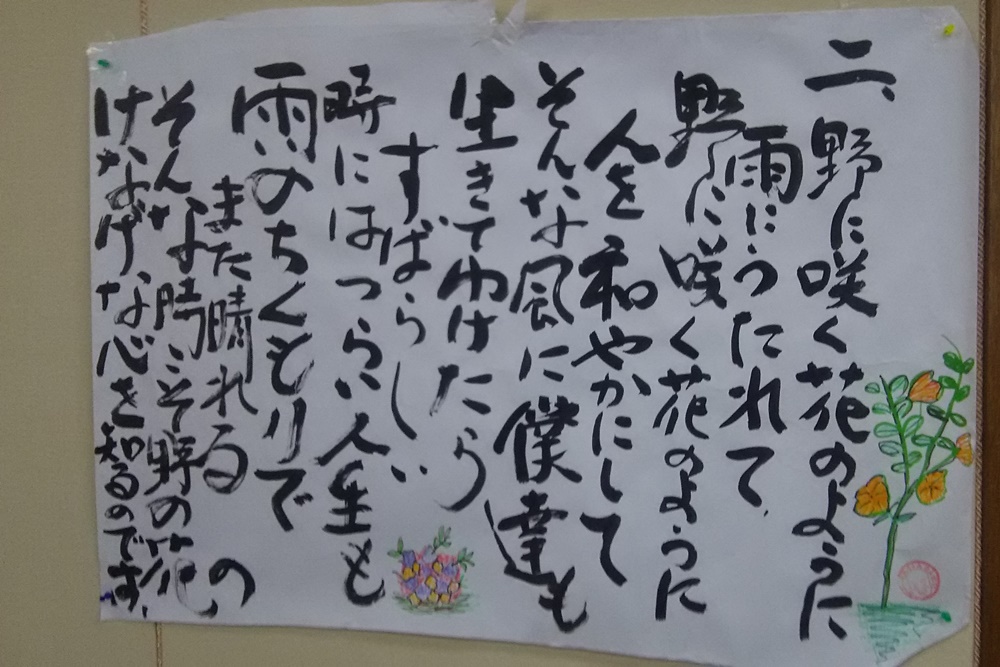 二、野に咲く花のように
雨にうたれて
野に咲く花のように
人を和やかにして
そんな風に僕達も
生きてゆけたら
すばらしい
時にはつらい人生も
雨のちくもりで
また晴れる
そんな時こそ野の花の
けなげな心を知るのです